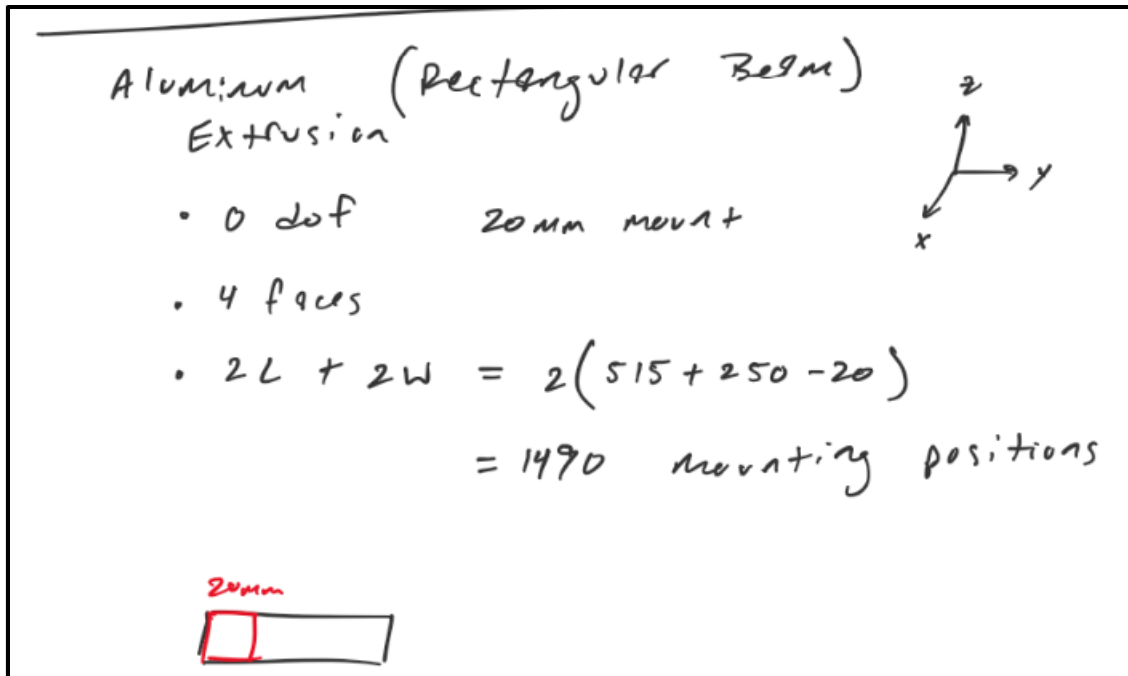 Aluminum (Rectangular Beam)
Extrusion
z
y
x
• 0 dof 20mm mount
• 4 faces
• 2L + 2W = 2(515 + 250 - 20)
= 1490 mounting positions
20mm